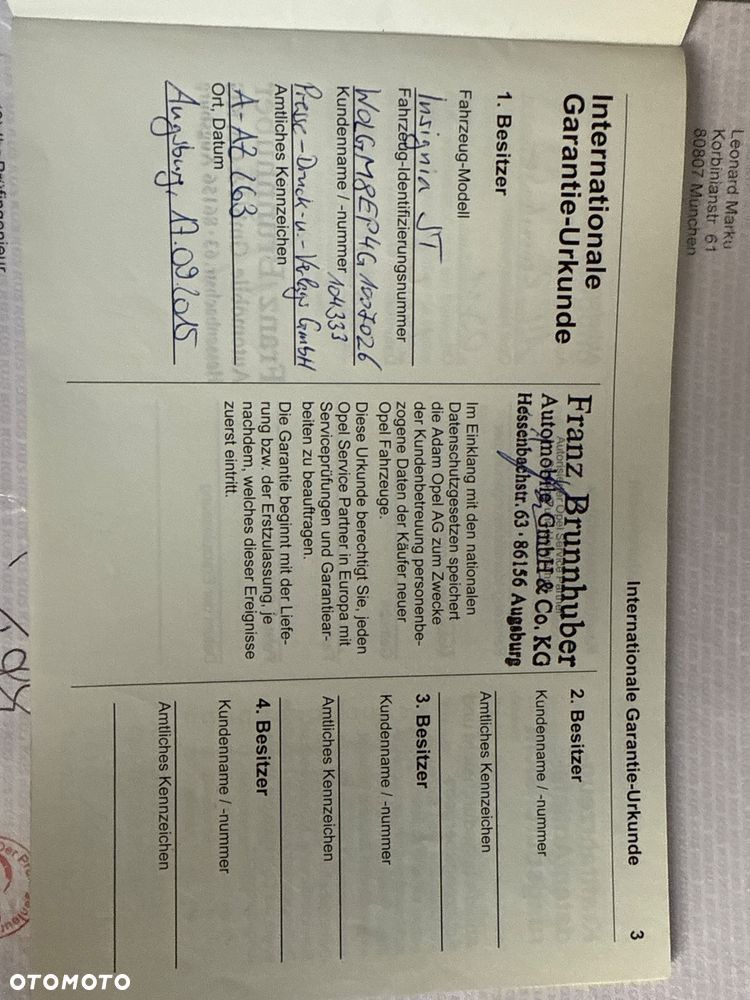 Leonard Marku
Korbinianstr. 61
80807 München
Internationale Garantie-Urkunde 3
Internationale
Garantie-Urkunde
1. Besitzer
Fahrzeug-Modell
Insignia ST
Fahrzeug-Identifizierungsnummer
W0LGM8EP4G1007026
Kundenname / -nummer 104333
Presse-Druck-u-Verlags GmbH
Amtliches Kennzeichen
A-AZ 263
Ort, Datum
Augsburg, 17.09.2015
Autorisierter Opel Service Partner
Franz Brunnhuber
Automobile GmbH & Co. KG
Hessenbachstr. 63 · 86156 Augsburg
Im Einklang mit den nationalen
Datenschutzgesetzen speichert
die Adam Opel AG zum Zwecke
der Kundenbetreuung personenbe-
zogene Daten der Käufer neuer
Opel Fahrzeuge.
Diese Urkunde berechtigt Sie, jeden
Opel Service Partner in Europa mit
Serviceprüfungen und Garantiear-
beiten zu beauftragen.
Die Garantie beginnt mit der Liefe-
rung bzw. der Erstzulassung, je
nachdem, welches dieser Ereignisse
zuerst eintritt.
2. Besitzer
Kundenname / -nummer
Amtliches Kennzeichen
3. Besitzer
Kundenname / -nummer
Amtliches Kennzeichen
4. Besitzer
Kundenname / -nummer
Amtliches Kennzeichen
OTOMOTO